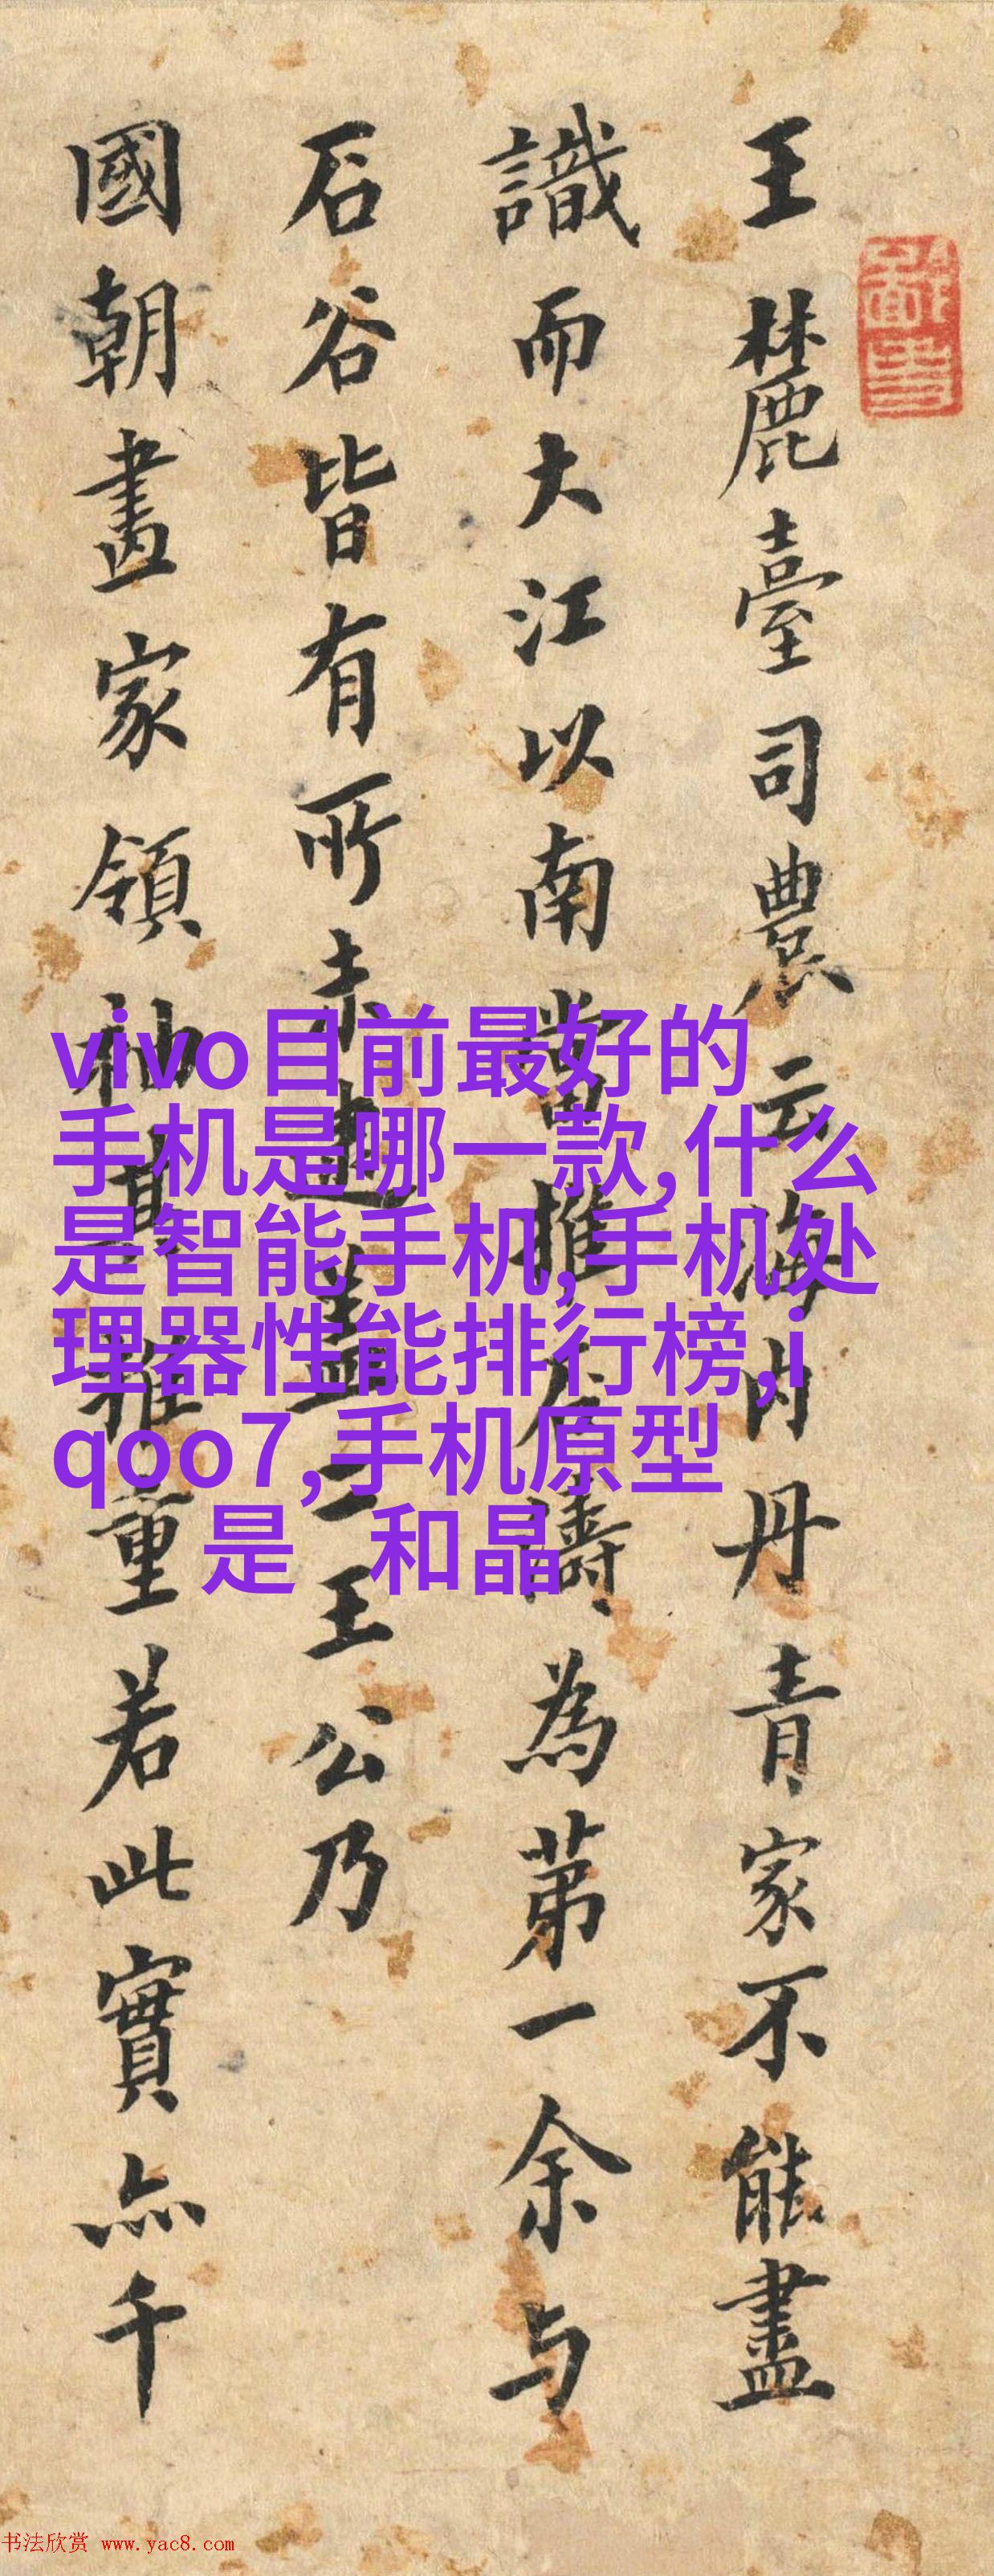 王麓臺司農云海内丹青家不能盡
識而大江以南當推石濤為第一余与
石谷皆有所未逮盖二王公乃
國朝畫家領袖其推重若此實亦千
vivo目前最好的
手机是哪一款,什么
是智能手机,手机处
理器性能排行榜,i
qoo7,手机原型
是 和晶
书法欣赏 www.yac8.com